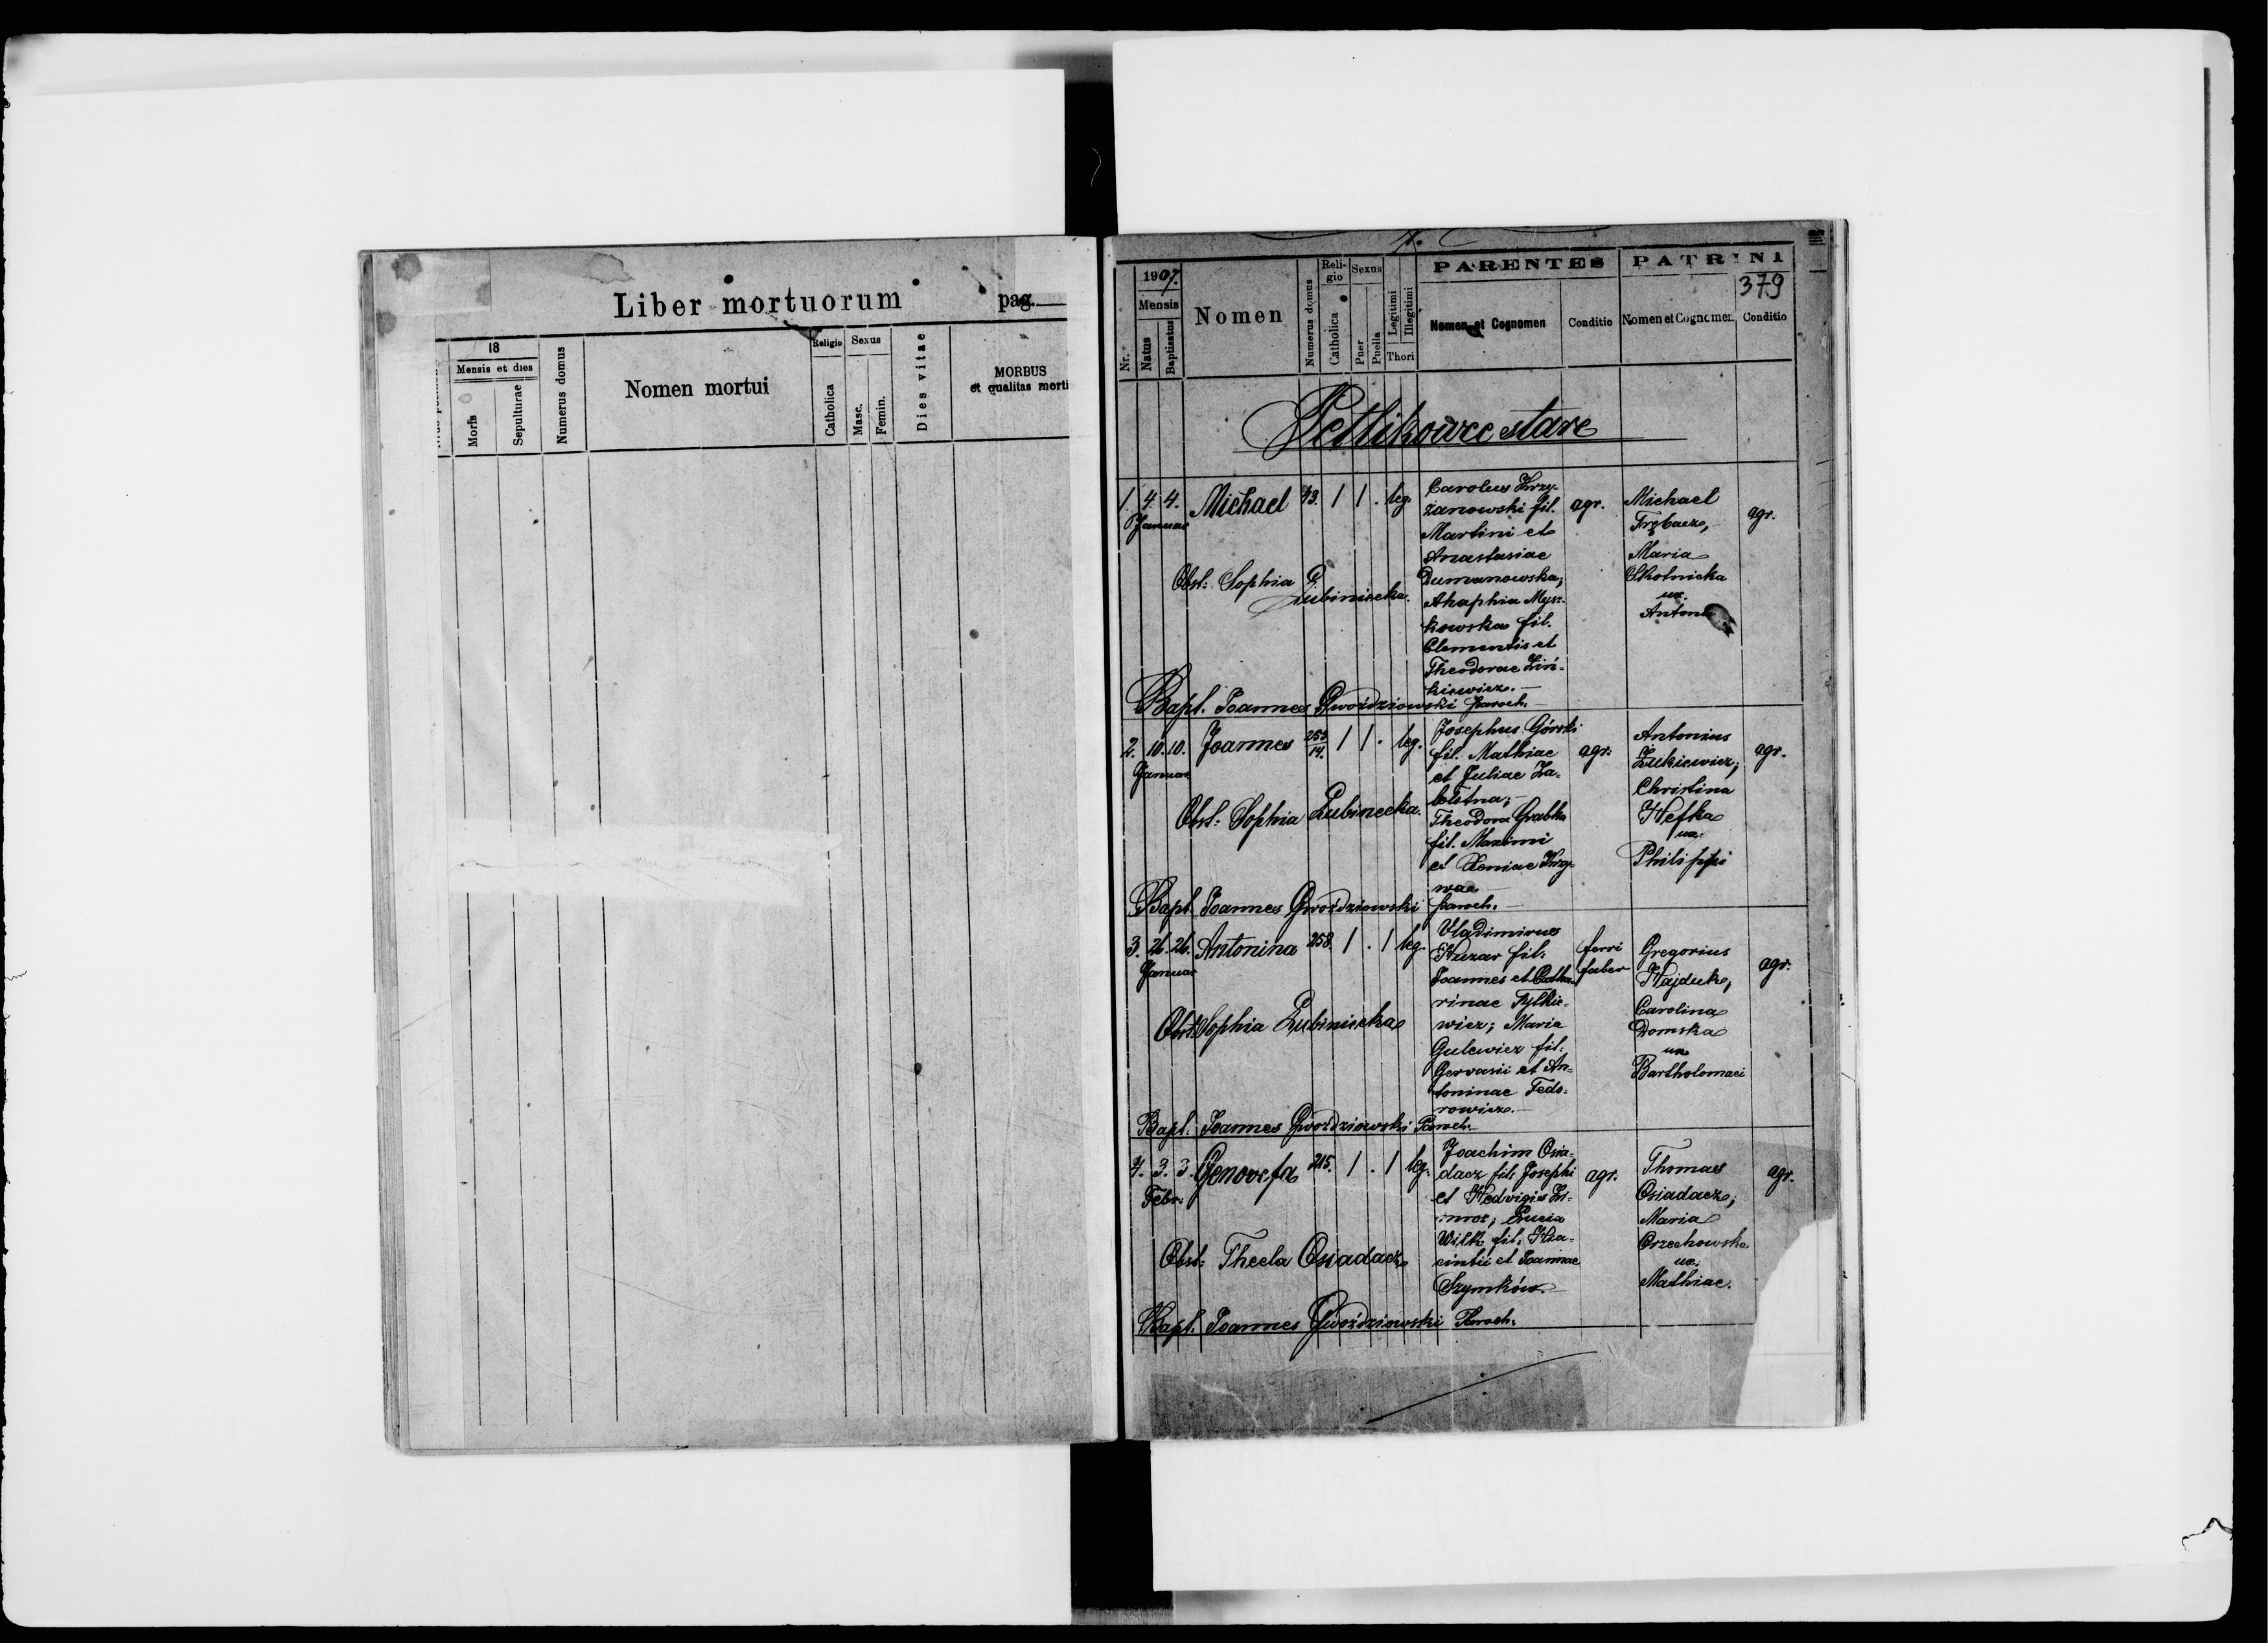 Liber mortuorum pag.
18
Mensis et dies
Mortis
Sepulturae
Numerus domus
Nomen mortui
Religio
Catholica
Sexus
Masc.
Femin.
Dies vitae
MORBUS
et qualitas morti
1.
379
Nr.
1907.
Mensis
Natus
Baptisatus
Nomen
Numerus domus
Reli-
gio
Catholica
Sexus
Puer
Puella
Legitimi
Illegitimi
Thori
PARENTES
Nomen et Cognomen
Conditio
PATRINI
Nomen et Cognomen
Conditio
Petlikowce stare
1. 4. 4. Michael 43. 1 1 . leg.
Januar
Carolus Krzy-
żanowski fil.
Martini et
Anastasiae
Dumanowska;
Ahaphia Mysz-
kowska fil.
Clementis et
Theodorae Zin-
kiewicz.
agr.
Michael
Trębacz,
Maria
Skotnicka
ux.
Antoni
agr.
Obst: Sophia Lubiniecka.
Bapt. Joannes Gwoździowski paroch.
2. 10. 10. Joannes 255/14. 1 1 . leg.
Januar
Josephus Górski
fil. Mathiae
et Juliae Za-
Theodora Grabka
fil. Maximi
et Xeniae
agr.
Antonius
Żukiewicz;
Christina
Hefka
ux.
Philippi
agr.
Obst: Sophia Lubinecka.
Bapt. Joannes Gwoździowski paroch.
3. 26. 26. Antonina 258 1 . 1 leg.
Januar
Vladimirus
Huzar fil:
Joannes et Catha-
rinae Fylkie-
wicz; Maria
Gulewicz fil:
Gervasii et An-
toninae Fedo-
rowicz.
ferri
faber
Gregorius
Hajduk,
Carolina
Domska
ux
Bartholomaei
agr.
Obst: Sophia Lubiniecka
Bapt. Joannes Gwoździowski Paroch.
4. 3. 3. Genovefa 215. 1 . 1 leg.
Febr:
Joachim Osia-
dacz fil: Josephi
et Hedvigis
Lucia
Wilk fil: Hya-
cintii et Joannae
Szymków.
agr.
Thomas
Osiadacz;
Maria
Orzechowska
ux.
Mathiae.
agr.
Obst: Thecla Osiadacz
Bapt. Joannes Gwoździowski Paroch.